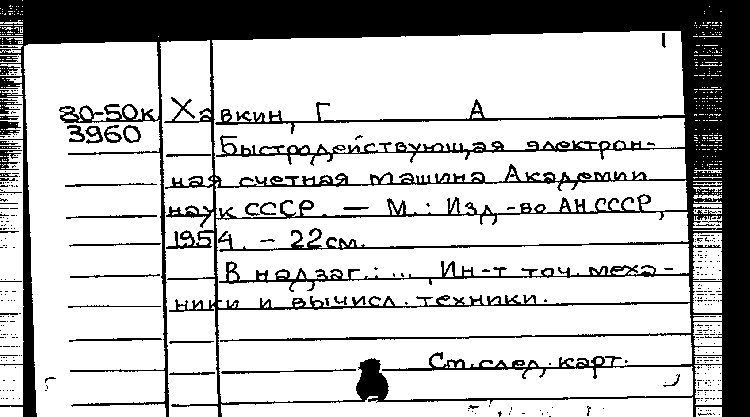 80-50к Хавкин, Г А
3960
Быстродействующая электрон-
ная счетная машина Академии
наук СССР. — М.: Изд-во АН СССР,
1954. - 22см.
В надзаг.: ... Ин-т точ. меха-
ники и вычисл. техники.
См. след. карт.